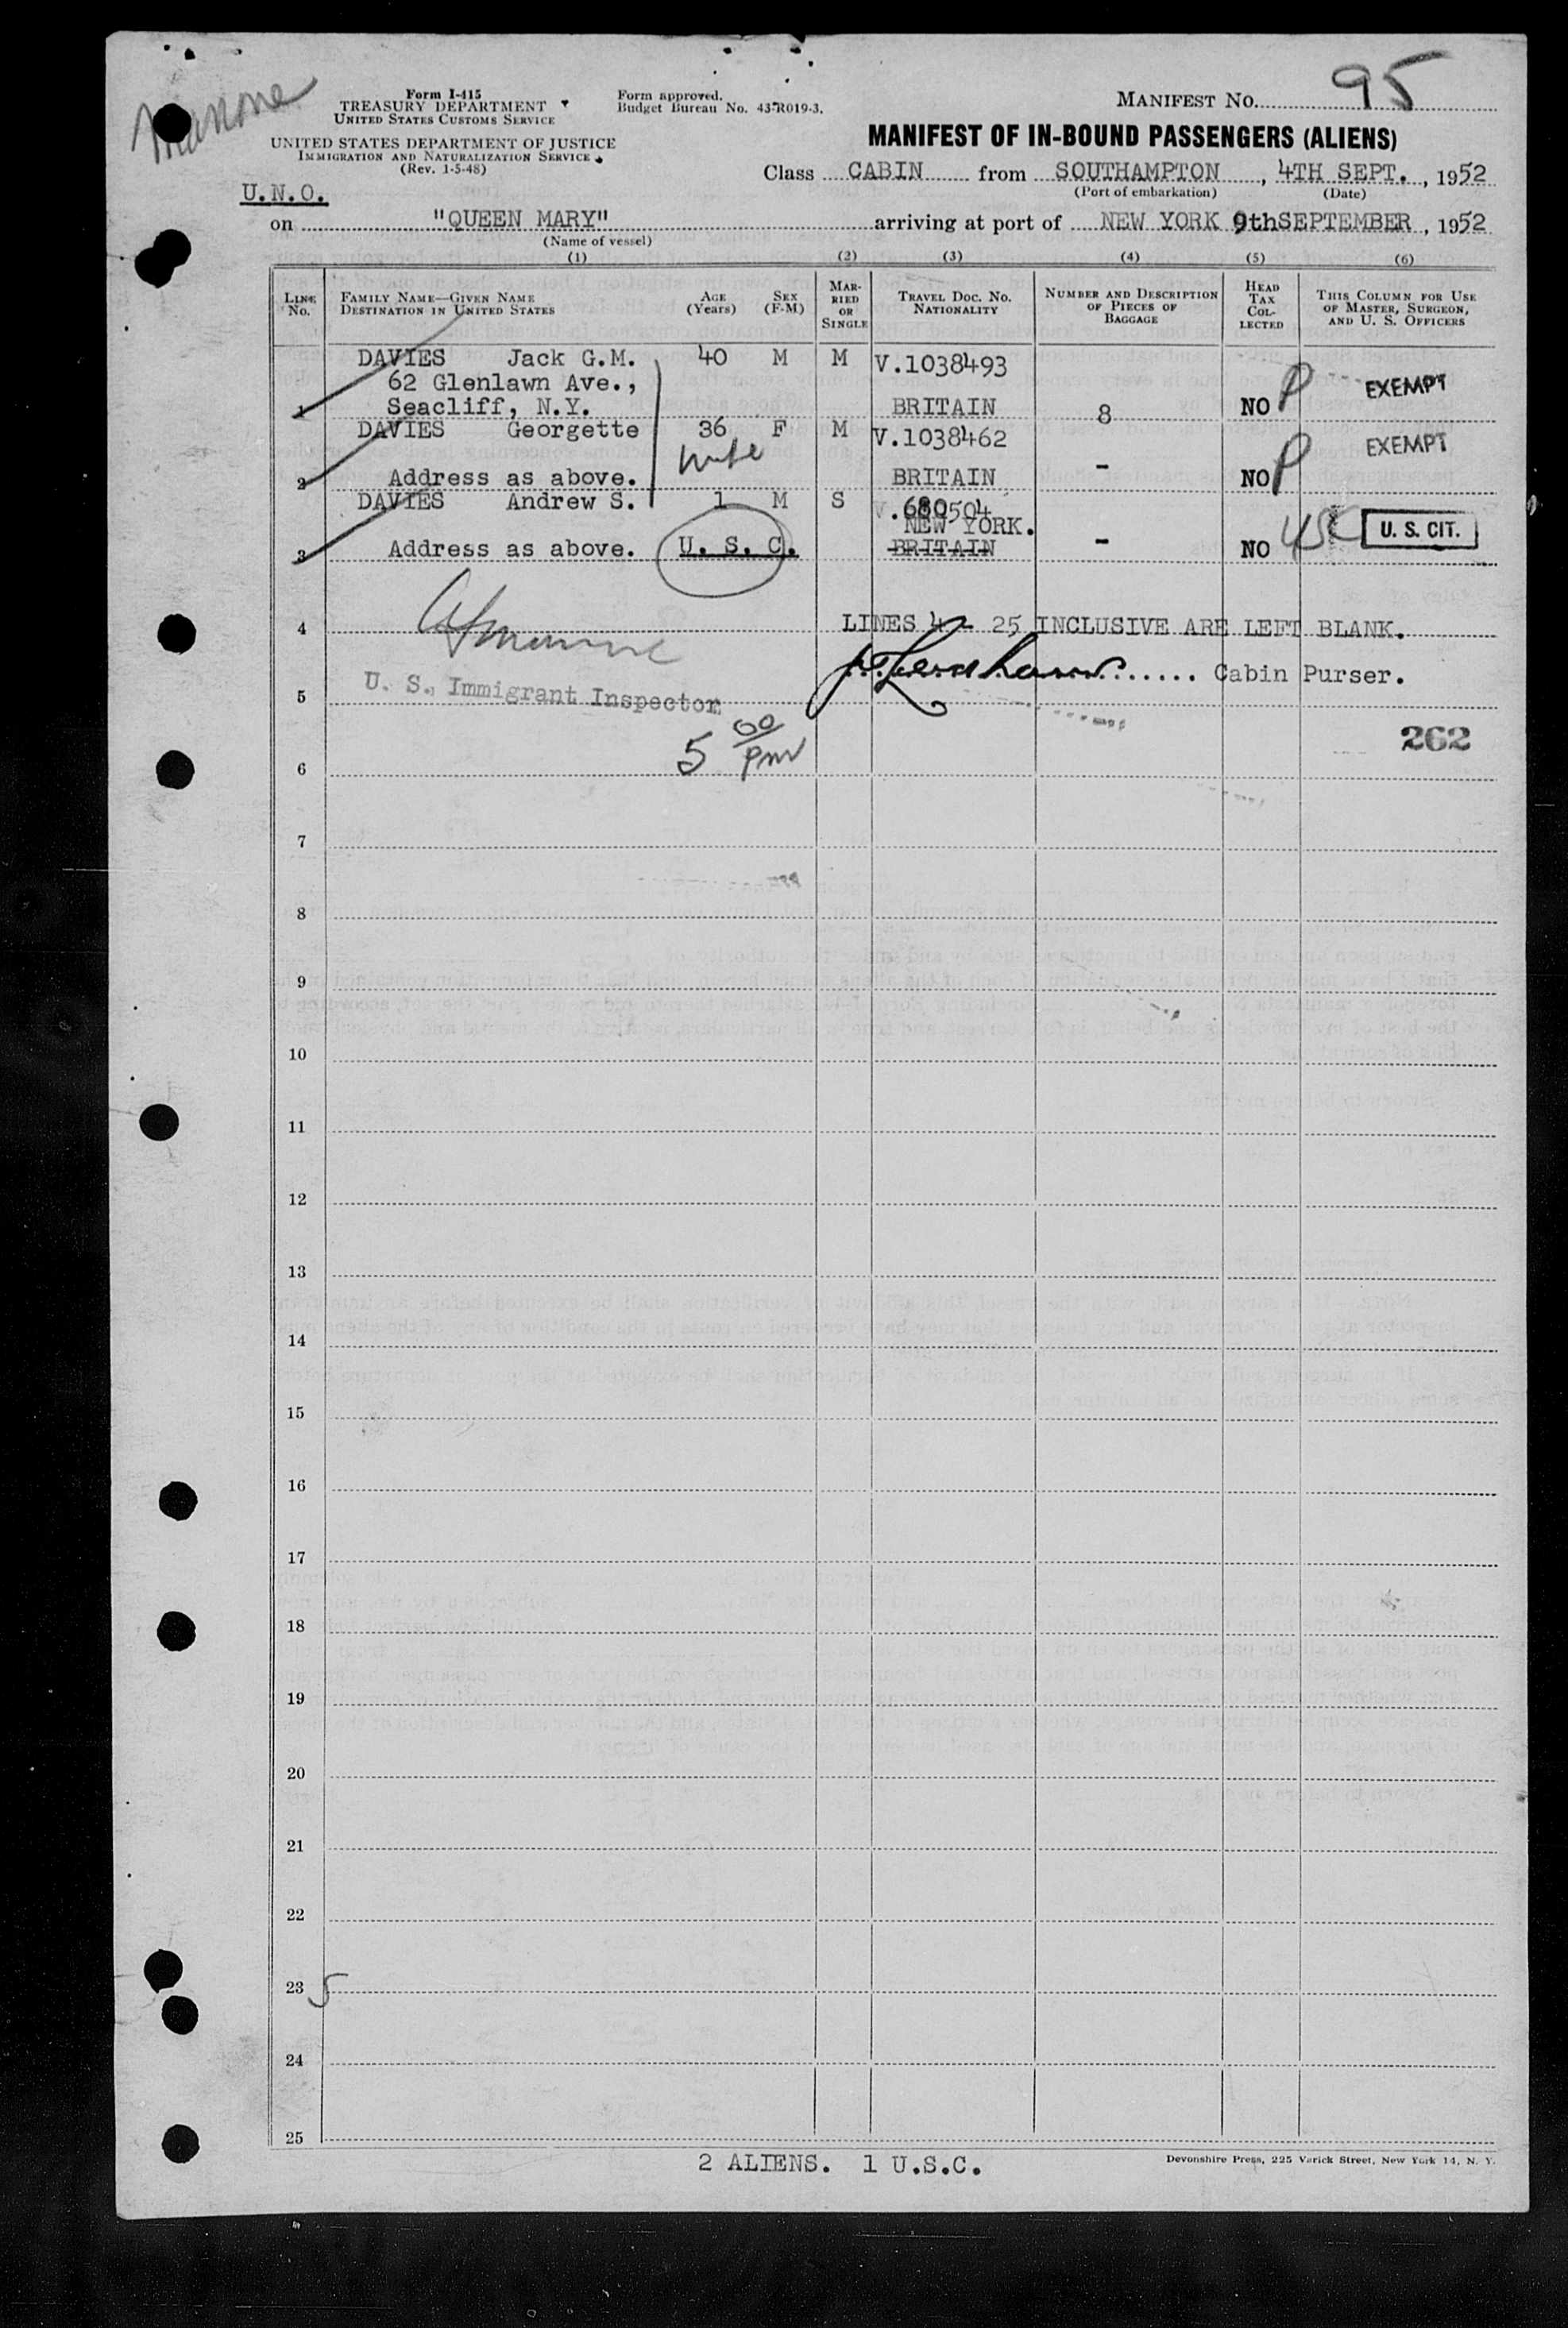 95
Form I-415
TREASURY DEPARTMENT
UNITED STATES CUSTOMS SERVICE
UNITED STATES DEPARTMENT OF JUSTICE
IMMIGRATION AND NATURALIZATION SERVICE
(Rev. 1-5-48)
Form approved.
Budget Bureau No. 43-R019-3.
MANIFEST NO.
MANIFEST OF IN-BOUND PASSENGERS (ALIENS)
Class CABIN from SOUTHAMPTON, 4TH SEPT., 1952
(Port of embarkation) (Date)
U.N.O.
on "QUEEN MARY" arriving at port of NEW YORK 9th SEPTEMBER, 1952
(Name of vessel)
(1) (2) (3) (4) (5) (6)
LINE NO. FAMILY NAME—GIVEN NAME DESTINATION IN UNITED STATES AGE (Years) SEX (F-M) MARRIED OR SINGLE TRAVEL DOC. NO. NATIONALITY NUMBER AND DESCRIPTION OF PIECES OF BAGGAGE HEAD TAX COLLECTED THIS COLUMN FOR USE OF MASTER, SURGEON, AND U. S. OFFICERS
DAVIES Jack G.M. 40 M M V.1038493
62 Glenlawn Ave., EXEMPT
1 Seacliff, N.Y. BRITAIN 8 NO P
DAVIES Georgette 36 F M V.1038462 EXEMPT
wife
2 Address as above. BRITAIN - NO P
DAVIES Andrew S. 1 M S V.680504
NEW YORK.
3 Address as above. U. S. C. BRITAIN - NO USC U. S. CIT.
4 LINES 4 - 25 INCLUSIVE ARE LEFT BLANK.
U. S. Immigrant Inspector
5 Cabin Purser.
5 00 pm
262
6
7
8
9
10
11
12
13
14
15
16
17
18
19
20
21
22
23 5
24
25
2 ALIENS. 1 U.S.C.
Devonshire Press, 225 Varick Street, New York 14, N. Y.